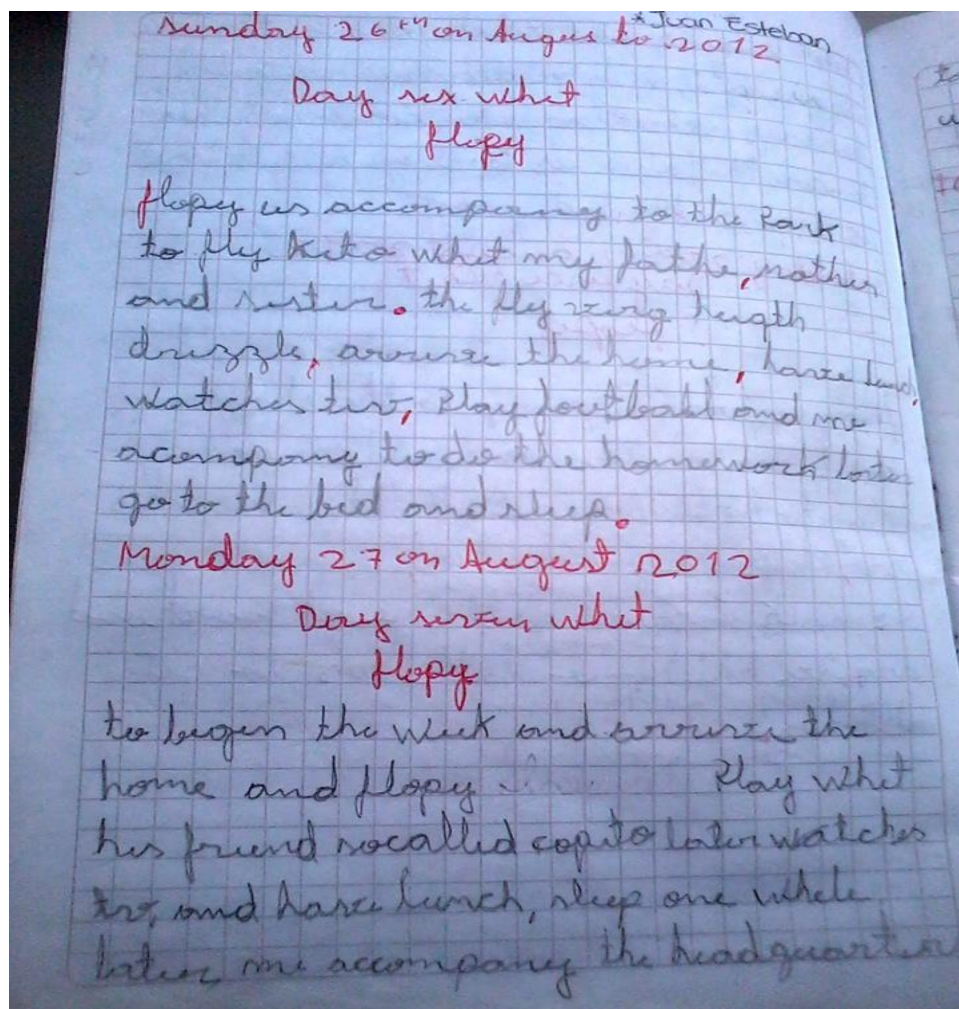 * Juan Esteban
Sunday 26th on Augus to 2012
Day six whit
flopy
flopy us accompany to the Park
to fly kite whit my fathe, mother
and sister. the fly ving heigth
drizzle, arrive the home, have lunch,
watches tv, Play football and me
acompany to do the homework later
go to the bed and sleep.
Monday 27 on August 2012
Day seven whit
flopy
to begen the week and arrive the
home and flopy Play whit
his friend socalled copito later watches
tv, and have lunch, sleep one while
later me accompany the headquarter